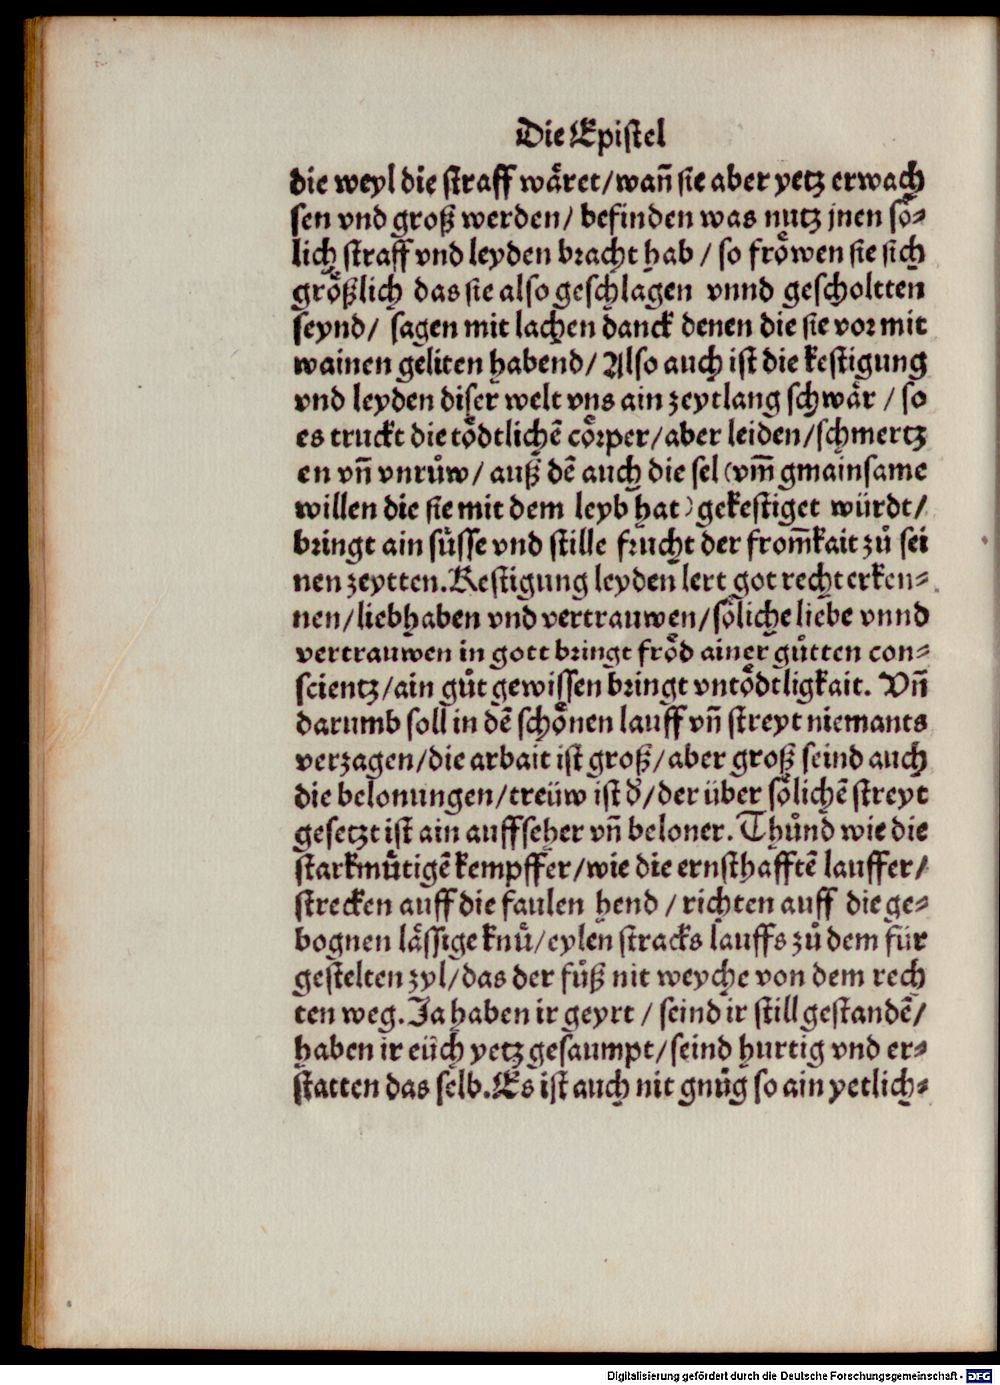 Die Epistel
die weyl die straff wäret/wañ sie aber yetz erwach
sen vnd groß werden/ befinden was nutz jnen soͤ⸗
lich straff vnd leyden bracht hab / so froͤwen sie sich
groͤßlich das sie also geschlagen vnnd gescholtten
seynd/ sagen mit lachen danck denen die sie vor mit
wainen geliten habend/ Also auch ist die kestigung
vnd leyden diser welt vns ain zeytlang schwaͤr / so
es truckt die toͤdtlichē coͤrper/aber leiden/schmertz
en vñ vnruͦw/ auß dē auch die sel (vm̃ gmainsame
willen die sie mit dem leyb hat) gekestiget würdt/
bringt ain suͤsse vnd stille frucht der from̃kait zuͦ sei
nen zeytten. Kestigung leyden lert got recht erken⸗
nen/liebhaben vnd vertrauwen/soͤliche liebe vnnd
vertrauwen in gott bringt froͤd ainer guͦtten con⸗
scientz/ain guͦt gewissen bringt vntoͤdtligkait. Vñ
darumb soll in dē schoͤnen lauff vñ streyt niemants
verzagen/die arbait ist groß/aber groß seind auch
die belonungen/treüw ist ď/der über soͤlichē streyt
gesetzt ist ain auffseher vñ beloner. Thuͦnd wie die
starkmuͤtigē kempffer/wie die ernsthafftē lauffer/
strecken auff die faulen hend / richten auff die ge⸗
bognen laͤssige knuͤ/eylen stracks lauffs zuͦ dem für
gestelten zyl/das der fuͦß nit weyche von dem rech
ten weg. Ja haben ir geyrt / seind ir still gestandē/
haben ir eüch yetz gesaumpt/seind hurtig vnd er⸗
statten das selb. Es ist auch nit gnuͦg so ain yetlich⸗
Digitalisierung gefördert durch die Deutsche Forschungsgemeinschaft - DFG